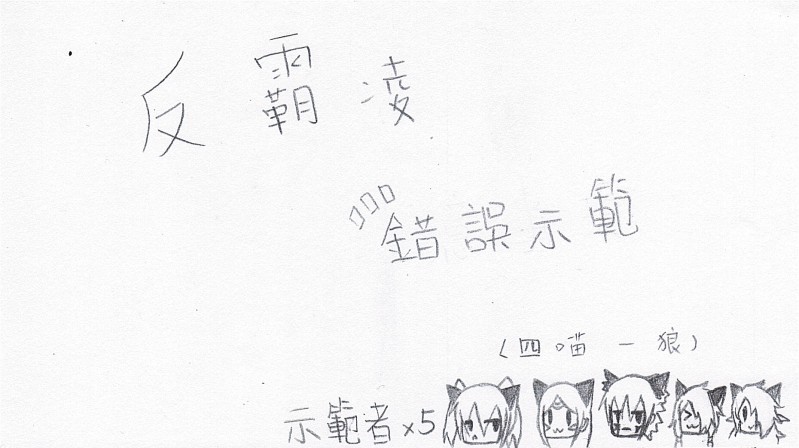 反霸凌
錯誤示範
(四喵一狼)
示範者x5